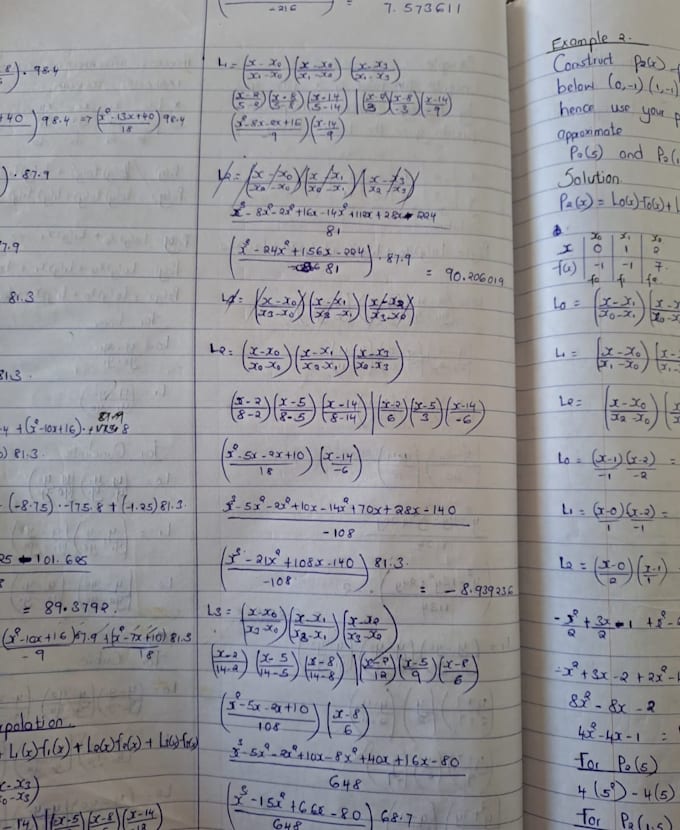 -216
= 7.573611
8) . 98.4
+40) 98.4 => (x² -13x+40 / 18) 98.4
) . 87.9
7.9
81.3
81.3.
87.9
-4 + (x²-10x+16) . + 8
) 81.3.
- (-8.75) - 175.8 + (-1.25) 81.3.
25 - 101.625
8
= 89.3792.
(x²-10x+16 / -9) 87.9 + (x²-7x+10 / 18) 81.3
polation.
+ L1(x)f1(x) + L2(x)f2(x) + L3(x)f3(x)
x-x3)
x0-x3)
-14) | (x-5)(x-8)(x-14 / -12)
L1 = (x-x0 / x1-x0) (x-x0 / x1-x0) (x-x3 / x1-x3)
(x-2 / 5-2) (x-8 / 5-8) (x-14 / 5-14) | (x-2 / 3) (x-8 / -3) (x-14 / -9)
(x²-8x-2x+16 / -9) (x-14 / -9)
L2 = (x-x0 / x2-x0) (x-x1 / x0-x1) (x-x3 / x2-x3)
x³ - 8x² -2x² +16x -14x² +112x +28x - 224
81
(x³ - 24x² + 156x - 224 / 81) . 87.9
= 90.206019
L2 = (x-x0 / x3-x0) (x-x1 / x3-x1) (x-x2 / x3-x2)
L2 = (x-x0 / x2-x0) (x-x1 / x2-x1) (x-x3 / x2-x3)
(x-2 / 8-2) (x-5 / 8-5) (x-14 / 8-14) | (x-2 / 6) (x-5 / 3) (x-14 / -6)
(x²-5x-2x+10 / 18) (x-14 / -6)
x³-5x²-2x²+10x-14x²+70x+28x-140
-108
(x³ - 21x² + 108x - 140 / -108) 81.3.
= - 8.939236
L3 = (x-x0 / x3-x0) (x-x1 / x3-x1) (x-x2 / x3-x2)
(x-2 / 14-2) (x-5 / 14-5) (x-8 / 14-8) | (x-2 / 12) (x-5 / 9) (x-8 / 6)
(x²-5x-2x+10 / 108) (x-8 / 6)
x³-5x²-2x²+10x-8x²+40x+16x-80
648
(x³ - 15x² + 66x - 80 / 648) 68.7
Example 2.
Construct P2(x)
below (0,-1) (1,-1)
hence use your
approximate
P2(5) and P2(1.
Solution
P2(x) = L0(x)f0(x)+L
x0 x1 x2
x 0 1 2
f(x) -1 -1 7
f0 f1 f2
L0 = (x-x1 / x0-x1) (x-x / x0-x
L1 = (x-x0 / x1-x0) (x- / x1-
L2 = (x-x0 / x2-x0) (x
L0 = (x-1)(x-2) =
-1 -2
L1 = (x-0)(x-2) =
1 -1
L2 = (x-0 / 2) (x-1 / 1)
-x²/2 + 3x/2 - 1 + x² -
= -x² + 3x - 2 + 2x² -
8x² - 8x - 2
4x² - 4x - 1 =
For P2(5)
4(5²) - 4(5)
For P2(1.5)